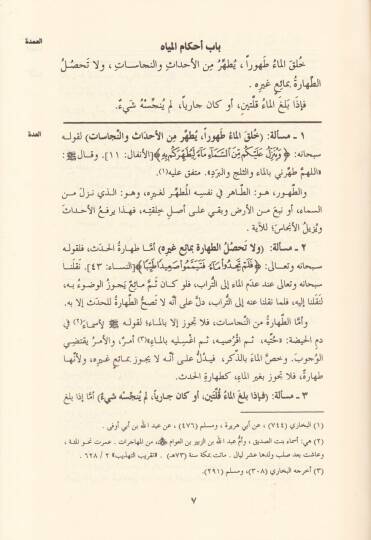 العمدة
باب أحكام المياه
خُلقَ الماءُ طَهوراً، يُطهِّرُ مِن الأحداثِ والنجاساتِ، ولا تَحصُلُ
الطهارةُ بمائِعٍ غيرِه.
فإذَا بَلغَ الماءُ قُلَّتينِ، أو كان جارياً، لم يُنجِّسْهُ شَيءٌ.
العدة
١ - مسألة: (خُلقَ الماءُ طَهوراً، يُطهِّرُ مِن الأحداثِ والنَّجاساتِ) لقولـه
سبحانه: ﴿ وَيُنَزِّلُ عَلَيْكُم مِّنَ ٱلسَّمَآءِ مَآءً لِّيُطَهِّرَكُم بِهِۦ ﴾ [الأنفال: ١١]. وقـالَ ﷺ:
«اللهمَّ طهِّرني بالماءِ والثلجِ والبَرَدِ». متفق عليه(١).
والطَّهور، هـو: الطَّـاهر في نَفسِـه المُطَهِّـر لغَيرِه، وهـو: الـذي نَـزلَ مِـن
السماء، أو نبعَ مِن الأرضِ وبقي على أصلِ خِلقتِه، فهـذا يرفـعُ الأحـداثَ
ويُزيلُ الأنجاسَ؛ للآية.
٢ - مسألة: (ولا تَحصُلُ الطهارة بمائعٍ غيرِه) أمَّـا طهـارةُ الحـدَث، فلقولـه
سبحانه وتعالى: ﴿ فَلَمْ تَجِدُوا۟ مَآءً فَتَيَمَّمُوا۟ صَعِيدًا طَيِّبًا ﴾ [النساء: ٤٣]. نَقَلَنا
سبحانه وتعالى عند عدَمِ الماء إلى التُّراب، فلو كان ثَمَّ مائعٌ يَجوزُ الوضوءُ بـه،
لنَقَلَنا إليه، فلما نقلنا عنه إلى التُّراب، دلَّ على أنَّه لا تَصحُّ الطَّهارةُ للحدَثِ إلا به.
وأمَّا الطَّهارةُ مِن النَّجاسات، فلا تجوز إلا بالماء؛ لقوله ﷺ لأسماءَ(٢) في
دمِ الحيضة: «حُتِّيه، ثم اقْرُصيه، ثم اغْسِليه بالماءِ»(٣) أمرٌ، والأمـرُ يقتضِـي
الوُجوبَ. وخصَّ الماءَ بالذِّكر، فيدُلُّ على أنَّـه لا يجـوز بمـائعٍ غـيرِه، ولأنَّهـا
طهارةٌ، فلا تجوز بغيرِ الماءِ، كطهارةِ الحدث.
٣ - مسألة: (فإذا بلغَ الماءُ قُلَّتين، أو كان جارياً، لم يُنجِّسْهُ شيءٌ) أمَّا إذا بلغ
(١) البخاري (٧٤٤)، عن أبي هريرة، ومسلم (٤٧٦)، عن عبد الله بن أبي أوفى.
(٢) هي: أسماء بنت الصديق، وأمُّ عبد الله بن الزبير بن العوام، من المهاجرات. عمرت نحو المئة،
وعاشت بعد صلب ولدها عشر ليال. ماتت بمكة سنة (٧٣هـ). «تقريب التهذيب» ٢ / ٦٢٨.
(٣) أخرجه البخاري (٣٠٨)، ومسلم (٢٩١).
٧